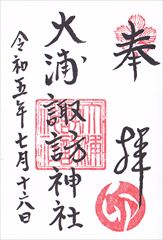 奉拝
大浦諏訪神社
令和五年七月十六日